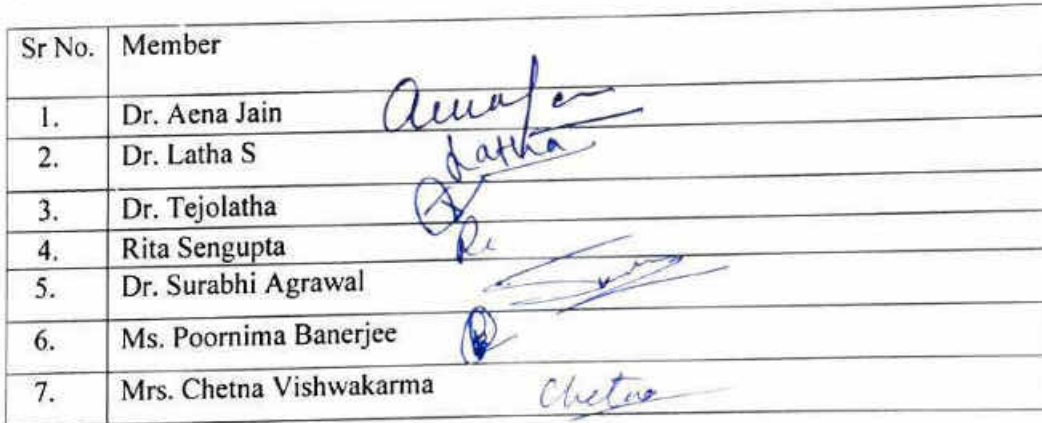 Sr No. Member
1. Dr. Aena Jain Aena Jain
2. Dr. Latha S Latha
3. Dr. Tejolatha
4. Rita Sengupta
5. Dr. Surabhi Agrawal
6. Ms. Poornima Banerjee
7. Mrs. Chetna Vishwakarma Chetna